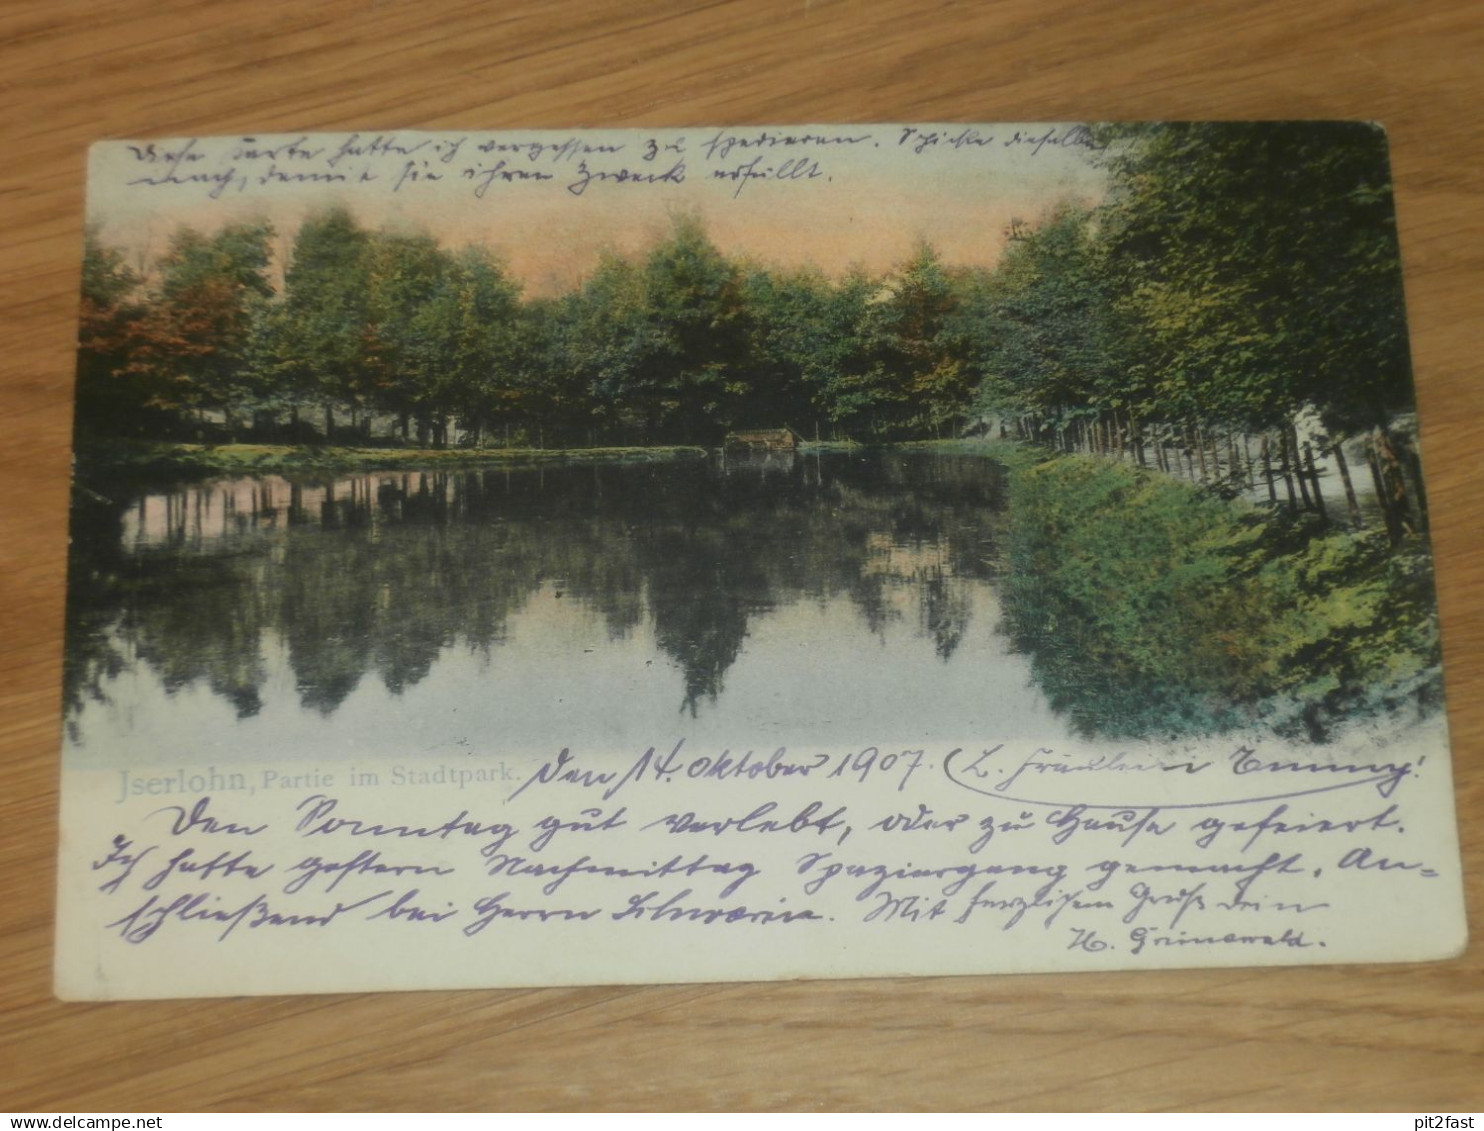 Diese Karte hatte ich vergessen zu spedieren. Schicke dieselbe
nach, damit sie ihren Zweck erfüllt.
Jserlohn, Partie im Stadtpark.
den 14. Oktober 1907. L. Fräulein Emmy!
Den Sonntag gut verlebt, oder zu Hause gefeiert.
Ich hatte gestern Nachmittag Spaziergang gemacht. An=
schließend bei Herrn. Mit herzlichem Gruß Dein
H. Grünewald.
pit2fast